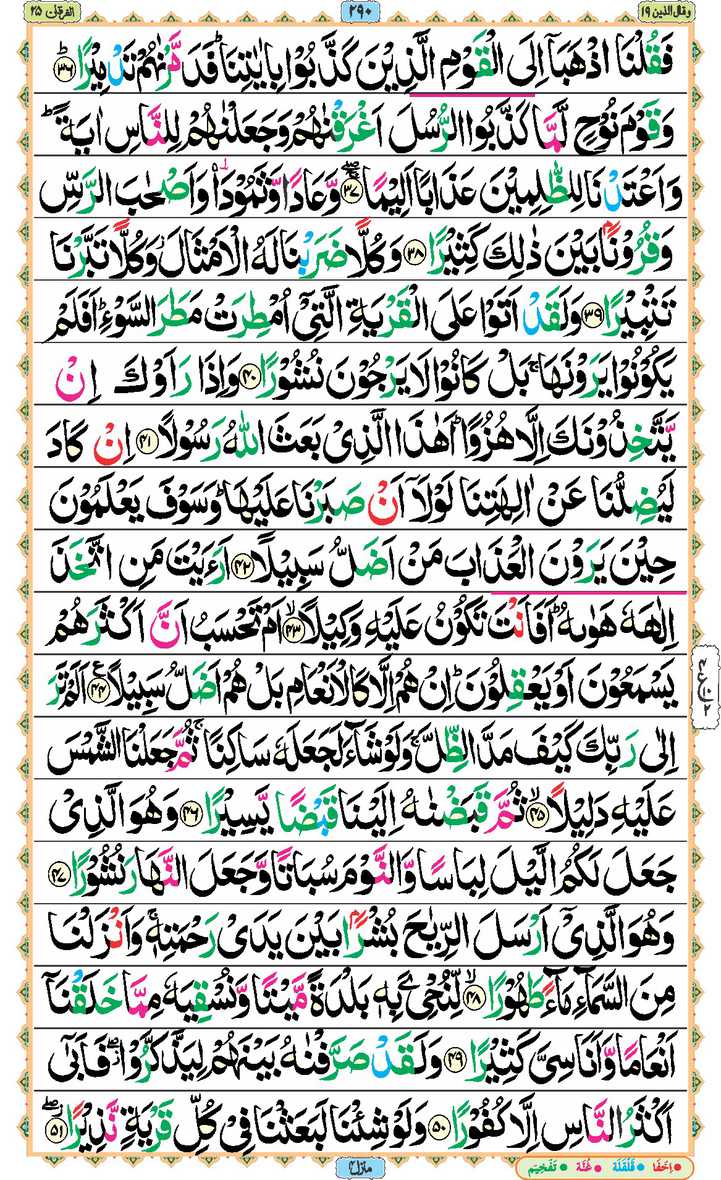 وقال الذین ١٩
٢٩٠
الفرقان ٢٥
فَقُلْنَا اذْهَبَاۤ اِلَى الْقَوْمِ الَّذِیْنَ كَذَّبُوْا بِاٰیٰتِنَاؕ فَدَمَّرْنٰهُمْ تَدْمِیْرًاؕ ﴿۳۶﴾
وَ قَوْمَ نُوْحٍ لَّمَّا كَذَّبُوا الرُّسُلَ اَغْرَقْنٰهُمْ وَ جَعَلْنٰهُمْ لِلنَّاسِ اٰیَةًؕ
وَ اَعْتَدْنَا لِلظّٰلِمِیْنَ عَذَابًا اَلِیْمًاۚۖ ﴿۳۷﴾ وَّ عَادًا وَّ ثَمُوْدَاۡ وَ اَصْحٰبَ الرَّسِّ
وَ قُرُوْنًۢا بَیْنَ ذٰلِكَ كَثِیْرًا ﴿۳۸﴾ وَ كُلًّا ضَرَبْنَا لَهُ الْاَمْثَالَ٘ وَ كُلًّا تَبَّرْنَا
تَتْبِیْرًا ﴿۳۹﴾ وَ لَقَدْ اَتَوْا عَلَى الْقَرْیَةِ الَّتِیْۤ اُمْطِرَتْ مَطَرَ السَّوْءِؕ اَفَلَمْ
یَكُوْنُوْا یَرَوْنَهَاۚ بَلْ كَانُوْا لَا یَرْجُوْنَ نُشُوْرًا ﴿۴۰﴾ وَ اِذَا رَاَوْكَ اِنْ
یَّتَّخِذُوْنَكَ اِلَّا هُزُوًاؕ اَهٰذَا الَّذِیْ بَعَثَ اللّٰهُ رَسُوْلًا ﴿۴۱﴾ اِنْ كَادَ
لَیُضِلُّنَا عَنْ اٰلِهَتِنَا لَوْ لَاۤ اَنْ صَبَرْنَا عَلَیْهَاؕ وَ سَوْفَ یَعْلَمُوْنَ
حِیْنَ یَرَوْنَ الْعَذَابَ مَنْ اَضَلُّ سَبِیْلًا ﴿۴۲﴾ اَرَءَیْتَ مَنِ اتَّخَذَ
اِلٰهَهٗ هَوٰىهُؕ اَفَاَنْتَ تَكُوْنُ عَلَیْهِ وَكِیْلًاۙ ﴿۴۳﴾ اَمْ تَحْسَبُ اَنَّ اَكْثَرَهُمْ
یَسْمَعُوْنَ اَوْ یَعْقِلُوْنَؕ اِنْ هُمْ اِلَّا كَالْاَنْعَامِ بَلْ هُمْ اَضَلُّ سَبِیْلًا۠ ﴿۴۴﴾ اَلَمْ تَرَ
اِلٰى رَبِّكَ كَیْفَ مَدَّ الظِّلَّۚ وَ لَوْ شَآءَ لَجَعَلَهٗ سَاكِنًاۚ ثُمَّ جَعَلْنَا الشَّمْسَ
عَلَیْهِ دَلِیْلًاۙ ﴿۴۵﴾ ثُمَّ قَبَضْنٰهُ اِلَیْنَا قَبْضًا یَّسِیْرًا ﴿۴۶﴾ وَ هُوَ الَّذِیْ
جَعَلَ لَكُمُ الَّیْلَ لِبَاسًا وَّ النَّوْمَ سُبَاتًا وَّ جَعَلَ النَّهَارَ نُشُوْرًا ﴿۴۷﴾
وَ هُوَ الَّذِیْۤ اَرْسَلَ الرِّیٰحَ بُشْرًۢا بَیْنَ یَدَیْ رَحْمَتِهٖۚ وَ اَنْزَلْنَا
مِنَ السَّمَآءِ مَآءً طَهُوْرًاۙ ﴿۴۸﴾ لِّنُحْیِۦَ بِهٖ بَلْدَةً مَّیْتًا وَّ نُسْقِیَهٗ مِمَّا خَلَقْنَاۤ
اَنْعَامًا وَّ اَنَاسِیَّ كَثِیْرًا ﴿۴۹﴾ وَ لَقَدْ صَرَّفْنٰهُ بَیْنَهُمْ لِیَذَّكَّرُوْا٘ۖ فَاَبٰۤى
اَكْثَرُ النَّاسِ اِلَّا كُفُوْرًا ﴿۵۰﴾ وَ لَوْ شِئْنَا لَبَعَثْنَا فِیْ كُلِّ قَرْیَةٍ نَّذِیْرًا٘ۖ ﴿۵۱﴾
منزل ۴
اِخفَا قَلْقَلَة غُنَّة تَفْخِیْم